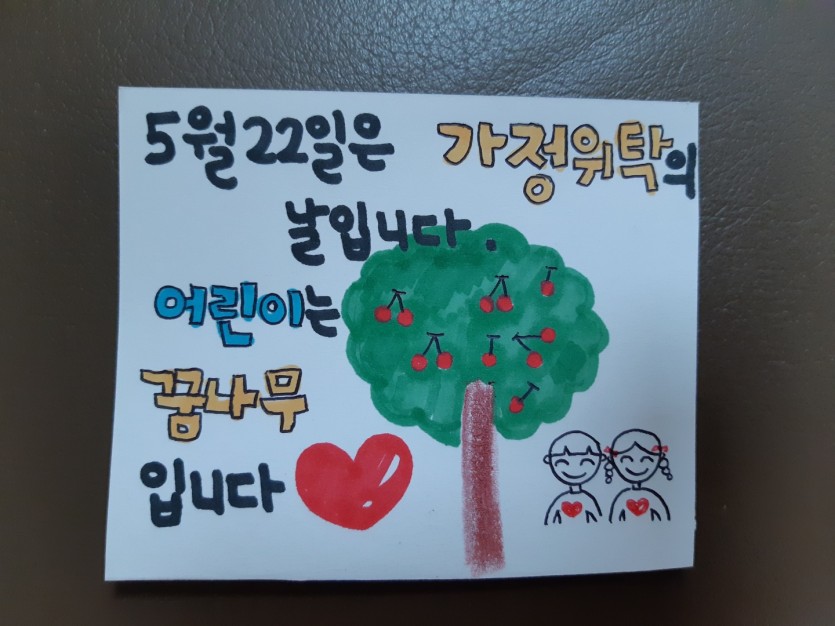 5월 22일은 가정위탁의
날입니다.
어린이는
꿈나무
입니다